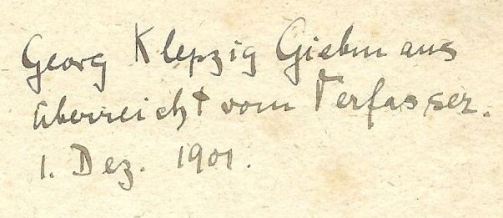 Georg Klepzig Giebmaus
überreicht vom Verfasser.
1. Dez. 1901.